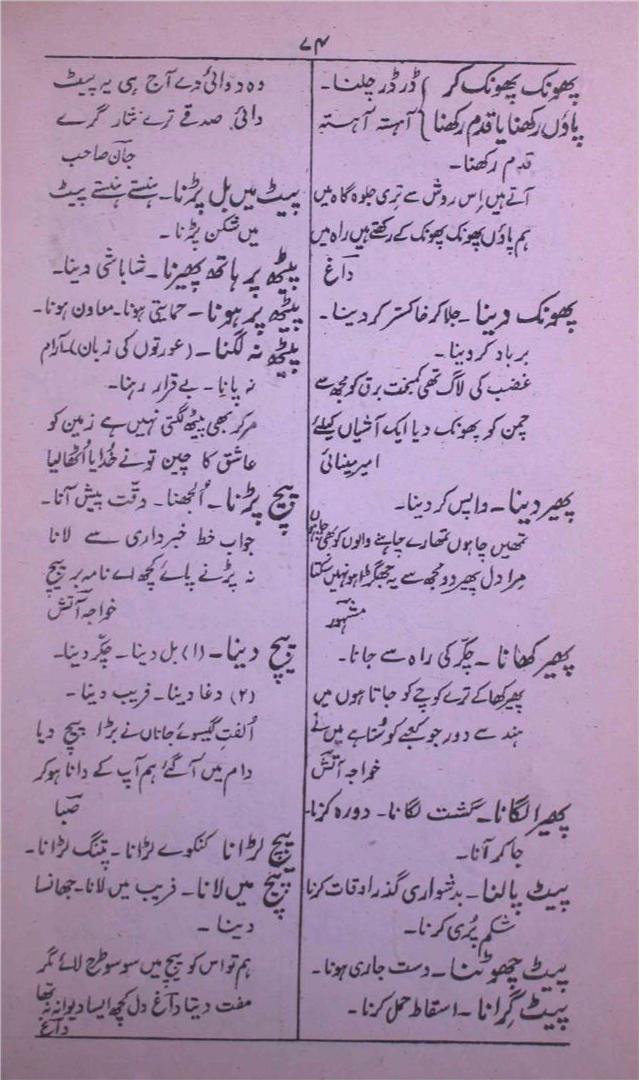 ۷۴
پھونک پھونک کر } ڈر ڈر چلنا۔
پاؤں رکھنا یا قدم رکھنا } آہستہ آہستہ
قدم رکھنا۔
آتے ہیں اِس روش سے تری جلوہ گاہ میں
ہم پاؤں پھونک پھونک کے رکھتے ہیں راہ میں
داغ
پھونک دینا۔ جلا کر خاکستر کر دینا۔
برباد کر دینا۔
غضب کی لاگ تھی کمبخت برق کو مجھ سے
چمن کو پھونک دیا ایک آشیاں کیلئے
امیر مینائی
پھیر دینا۔ واپس کر دینا۔
تمھیں چاہوں تمھارے چاہنے والوں کو بھی چاہوں
مرا دل پھیر دو مجھ سے یہ جھگڑا ہو نہیں سکتا
مشہور
پھیر کھانا۔ چکّر کی راہ سے جانا۔
پھیر کھا کے ترے کوچے کو جاتا ہوں میں
ہند سے دور جو کعبے کو سُنا ہے میں نے
خواجہ آتش
پھیرا لگانا۔ گشت لگانا۔ دورہ کرنا۔
جا کر آنا۔
پیٹ پالنا۔ بدشواری گذر اوقات کرنا
شکم پُری کرنا۔
پیٹ چھوٹنا۔ دست جاری ہونا۔
پیٹ گرانا۔ اسقاط حمل کرنا۔
وہ دوائی دے آج ہی یہ پیٹ
دائی صدقے ترے نثار گرے
جان صاحب
پیٹ میں بل پڑنا۔ ہنستے ہنستے پیٹ
میں شکن پڑنا۔
پیٹھ پر ہاتھ پھیرنا۔ شاباشی دینا۔
پیٹھ پر ہونا۔ حمایتی ہونا۔ معاون ہونا۔
پیٹھ نہ لگنا۔ (عورتوں کی زبان)۔ آرام
نہ پانا۔ بے قرار رہنا۔
مر کر بھی پیٹھ لگتی نہیں ہے زمین کو
عاشق کا چین تو نے خُدایا اُٹھا لیا
پیچ پڑنا۔ اُلجھنا۔ دقّت پیش آنا۔
جواب خط خبرداری سے لانا
نہ پڑنے پائے کچھ اے نامہ بر پیچ
خواجہ آتش
پیچ دینا۔ (۱) بل دینا۔ چکّر دینا۔
(۲) دغا دینا۔ فریب دینا۔
اُلفتِ گیسوئے جاناں نے بڑا پیچ دیا
دام میں آ گئے ہم آپ کے دانا ہو کر
صبا
پیچ لڑانا کنکوے لڑانا۔ پتنگ لڑانا۔
پیچ میں لانا۔ فریب میں لانا۔ جھانسا
دینا۔
ہم تو اس کو پیچ میں سو سو طرح لائے مگر
مفت دیتا داغ دل کچھ ایسا دیوانہ نہ تھا
داغ